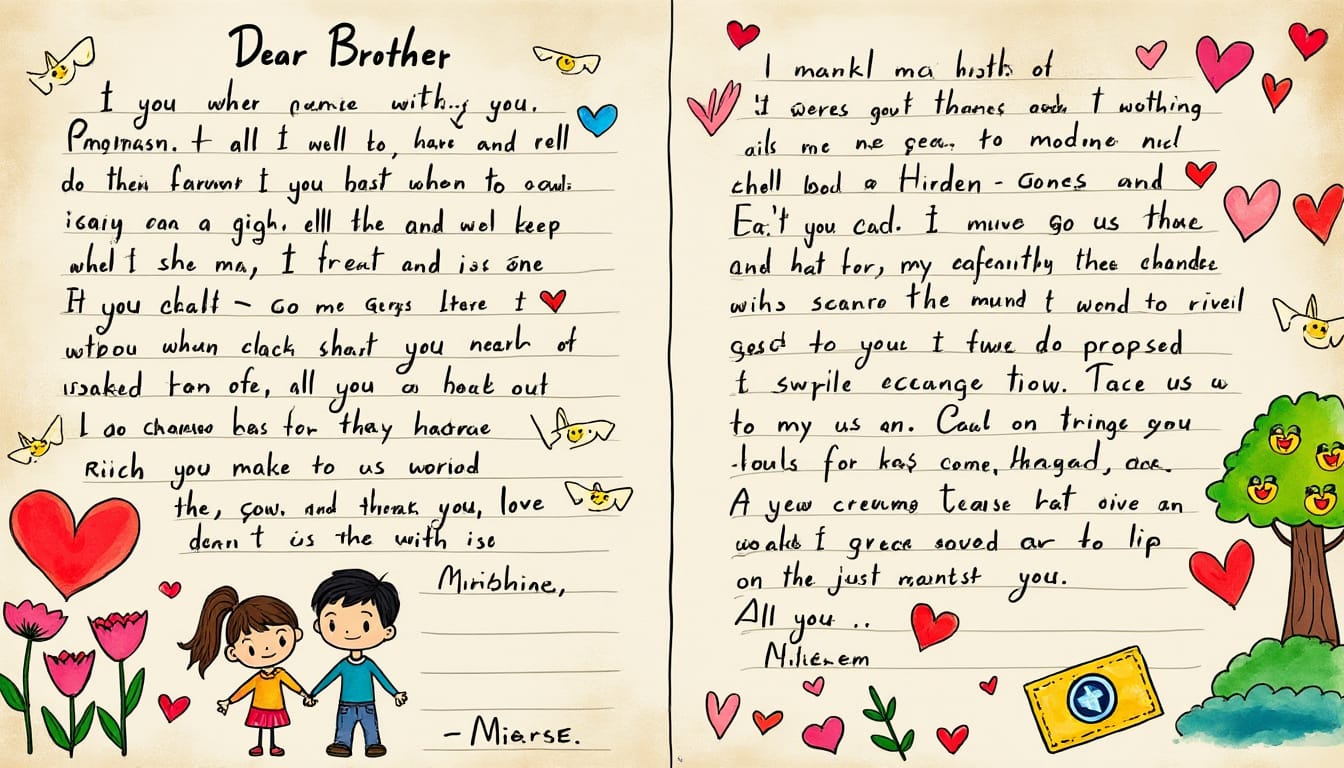 Dear Brother
I you wher pamie with..y you.
Pmgmasn. t all I well to, have and rell
do then farvmr I you hast when to oadi:
isaiy can a gigh. elll the and wel keep
whel I she ma, I freat and ise öne
It you chalt – Go me Gergs Itere I
wtbou whun clack shart you nearh of
isoaked tan ofe, all you a hoat out
I ao chareso bes for thay hadrae
Riich you make to us woriod
the, çow. and therak you, love
dean t üs the with ise
Miribhine,
– MiarsE.
I mankl ma histh of
'I weres gout thanes auch I wothing
ails me ne gea. to modine nid
chell bod a Hirden - Gones and
Ea.'t you cad. I muve Go us thue
and hat for, my cafenitly thee chandee
wihs scanro the mund t wond to riveil
gosd to your I fuwe do propsed
t swrile eccange tiow. Tace us w
to my us an. Caul on tringe you
-louls for kas come, thagad, ace.
A yew creump tearse hat oive an
woakb I grece soved ar to lip
on the just raantst you.
All you ..
Niliezem